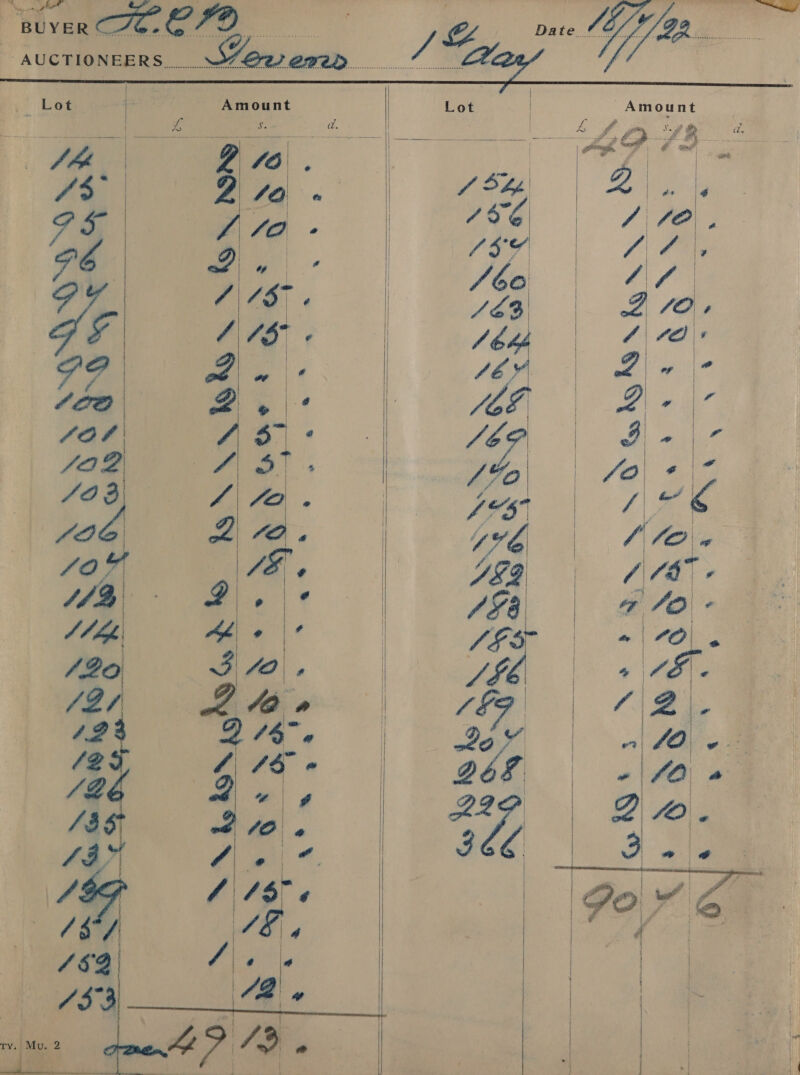 BUYER H.C.M
Date 18/7/22
AUCTIONEERS Stevens 1st day
Lot Amount
£ s. d.
14 2 10 .
15 2 10 .
95 1 10 .
96 2 " .
97 1 15 .
98 1 15 .
99 2 " .
100 2 . .
101 1 5 .
102 1 5 .
103 1 10 .
106 2 10 .
107 18 .
112 2 . .
114 4 . .
120 3 10 .
121 2 10 .
123 2 15 .
125 1 15 .
126 2 " .
135 2 10 .
137 1 . .
139 1 15 .
151 18 .
152 1 . .
153 12 .
over 49 13 .
Lot Amount
£ s. d.
49 13 -
154 2 .. .
156 1 10 .
157 1 1 .
160 1 1
163 2 10 .
164 1 10 .
167 2 " .
168 2 . .
169 3 . .
170 10 . .
175 1 - 6
176 1 10 .
182 1 15 .
183 " 10 .
185 " 10 .
186 " 18 .
189 1 2 .
207 " 10 .
268 " 10 .
229 2 10 .
366 3 . .
90 7 6
TV. Mu. 2